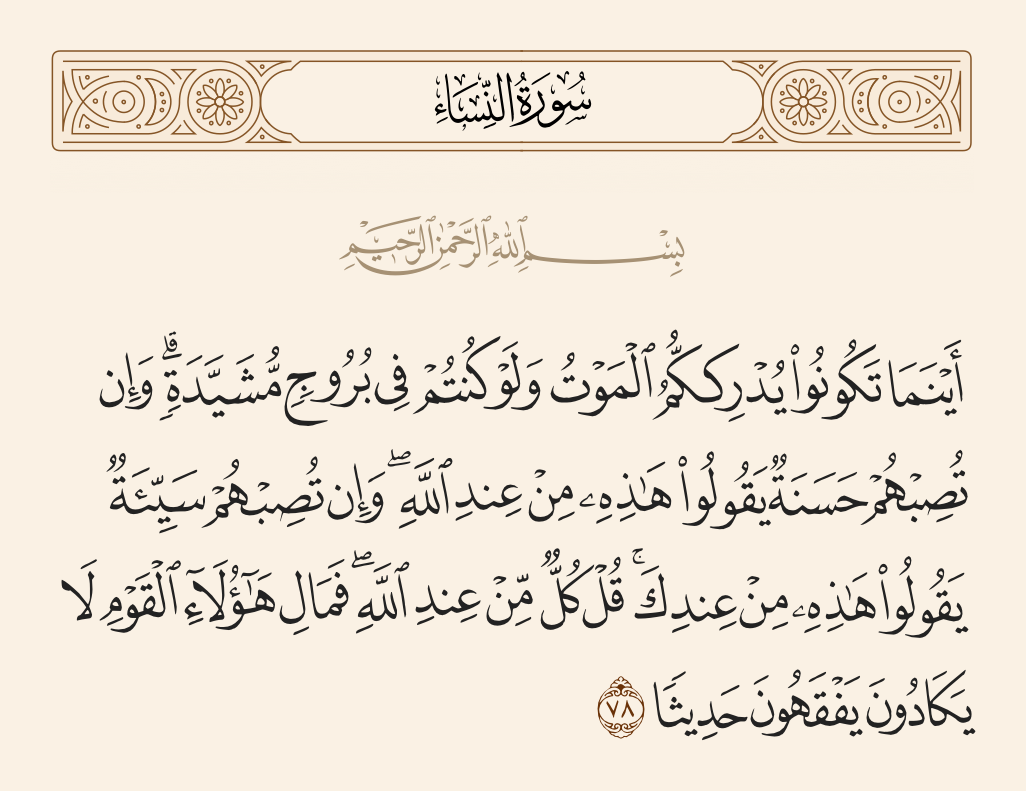 سُورَةُ النِّسَاءِ
بِسْمِ ٱللَّهِ ٱلرَّحْمَٰنِ ٱلرَّحِيمِ
أَيْنَمَا تَكُونُوا۟ يُدْرِككُّمُ ٱلْمَوْتُ وَلَوْ كُنتُمْ فِى بُرُوجٍ مُّشَيَّدَةٍ ۗ وَإِن
تُصِبْهُمْ حَسَنَةٌ يَقُولُوا۟ هَـٰذِهِۦ مِنْ عِندِ ٱللَّهِ ۖ وَإِن تُصِبْهُمْ سَيِّئَةٌ
يَقُولُوا۟ هَـٰذِهِۦ مِنْ عِندِكَ ۚ قُلْ كُلٌّ مِّنْ عِندِ ٱللَّهِ ۖ فَمَالِ هَـٰٓؤُلَآءِ ٱلْقَوْمِ لَا
يَكَادُونَ يَفْقَهُونَ حَدِيثًا ٧٨